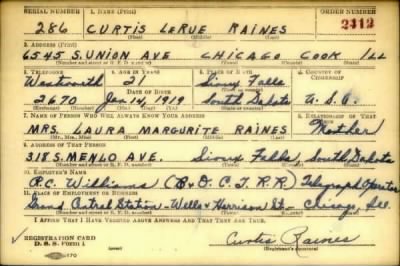 SERIAL NUMBER 1. NAME (Print) ORDER NUMBER
286 CURTIS LERUE RAINES 2412
(First) (Middle) (Last)
2. ADDRESS (Print)
6545 S. UNION AVE CHICAGO COOK ILL
(Number and street or R. F. D. number) (Town) (County) (State)
3. TELEPHONE 4. AGE IN YEARS 5. PLACE OF BIRTH 6. COUNTRY OF CITIZENSHIP
Wentworth 21 Sioux Falls
DATE OF BIRTH
2670 Jan 14, 1919 South Dakota U.S.A.
(Exchange) (Number) (Mo.) (Day) (Yr.) (State or country)
7. NAME OF PERSON WHO WILL ALWAYS KNOW YOUR ADDRESS 8. RELATIONSHIP OF THAT PERSON
MRS. LAURA MARGURITE RAINES Mother
(Mr., Mrs., Miss) (First) (Middle) (Last)
9. ADDRESS OF THAT PERSON
318 S. MENLO AVE. Sioux Falls, South Dakota
(Number and street or R. F. D. number) (Town) (County) (State)
10. EMPLOYER'S NAME
R.C. (B. & O. C. T. R.R.) Telegraph Operator
11. PLACE OF EMPLOYMENT OR BUSINESS
Grand Central Station - Wells & Harrison St - Chicago, Ill.
(Number and street or R. F. D. number) (Town) (County) (State)
I AFFIRM THAT I HAVE VERIFIED ABOVE ANSWERS AND THAT THEY ARE TRUE.
REGISTRATION CARD
D. S. S. Form 1 Curtis Raines
(Registrant's signature)